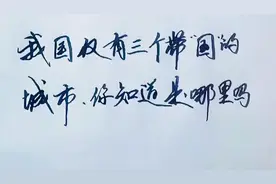 我国仅有三个带“国”的
城市、你知道是哪里吗